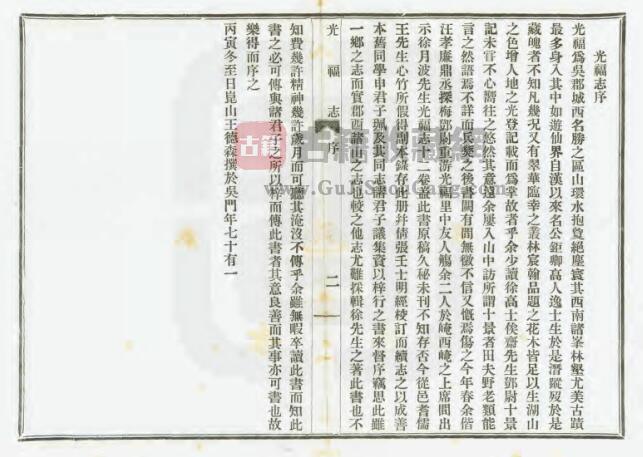 光福志序
光福爲吳郡城西名勝之區山環水抱夐絕塵寰其西南諸峯林壑尤美古蹟
最多身入其中如遊仙界自漢以來名公鉅卿高人逸士生於是潛蹤歿於是
藏魄者不知凡幾況又有翠華臨幸之叢林宸翰品題之花木皆足以生湖山
之色增人地之光登記載而爲掌故者乎余少讀徐高士俟齋先生鄧尉十景
記未嘗不心嚮往之悠然其意遠余屢入山中訪所謂十景者田夫野老類能
言之然語焉不詳而兵燹之後書闕有間無徵不信又慨焉傷之今年春余偕
汪孝廉鼎丞探梅鄧尉重游光福里中友人觴余二人於崦西崦之上席間出
示徐月波先生光福志十二卷蓋此書原稿久秘未刊不知存否今從邑耆儒
王先生心竹所假得副本錄存此册幷倩張王士明經校訂而續志之以成善
本舊同學申君子珮及其同志諸君子議集資以梓行之書來督序竊思此雖
一鄉之志而實郡西諸山之志也較之他志尤難採輯徐先生之著此書也不
光福志
序
二
知費幾許精神幾許歲月而可聽其淹沒不傳乎余雖無暇卒讀此書而知此
書之必可傳與諸君子之所以梓而傳此書者其意良善而其事亦可書也故
樂得而序之
丙寅冬至日崑山王德森撰於吳門年七十有一
古籍
古籍收藏網
www.GuJiShouCang.com